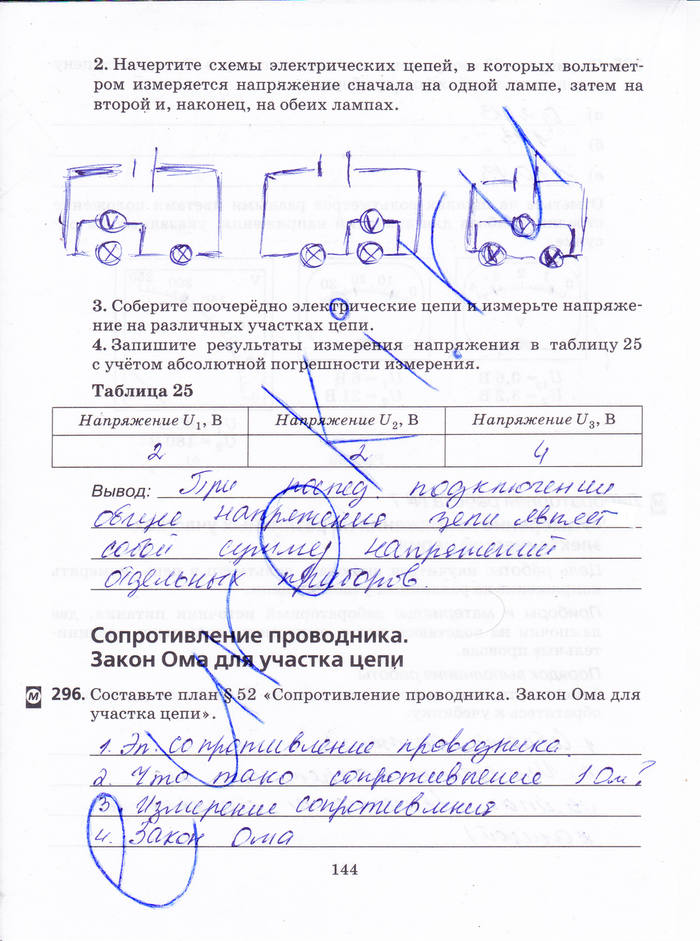 2. Начертите схемы электрических цепей, в которых вольтмет-
ром измеряется напряжение сначала на одной лампе, затем на
второй и, наконец, на обеих лампах.
V V V
3. Соберите поочерёдно электрические цепи и измерьте напряже-
ние на различных участках цепи.
4. Запишите результаты измерения напряжения в таблицу 25
с учётом абсолютной погрешности измерения.
Таблица 25
Напряжение U₁, В Напряжение U₂, В Напряжение U₃, В
2 2 4
Вывод: При послед. подключении
общие напряжение цепи являет
собой сумму напряжений
отдельных приборов
Сопротивление проводника.
Закон Ома для участка цепи
М 296. Составьте план § 52 «Сопротивление проводника. Закон Ома для
участка цепи».
1. Эл. сопротивление проводника.
2. Что тако сопротивление 1 Ом?
3. Измерение сопротивления
4. Закон Ома
144